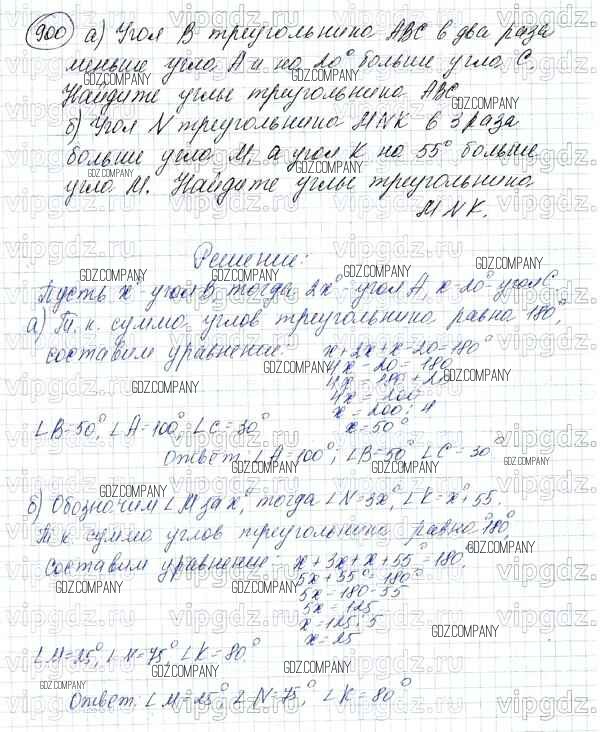 900 а) Угол В треугольника АВС в два раза
меньше угла А и на 20° больше угла С.
Найдите углы треугольника АВС
б) Угол N треугольника MNK в 3 раза
больше угла М, а угол К на 55° больше
угла М. Найдите углы треугольника
MNK.
Решение:
Пусть x° угол В, тогда 2x° - угол А, x-20° - угол С
а) Т.к. сумма углов треугольника равна 180°,
составим уравнение: x+2x+x-20=180°
4x-20=180
4x=180+20
4x=200
x=200:4
x=50°
∠B=50°, ∠A=100°, ∠C=30°
Ответ: ∠A=100°, ∠B=50°, ∠C=30°
б) Обозначим ∠M за x°, тогда ∠N=3x°, ∠K=x°+55.
Т.к. сумма углов треугольника равна 180°,
составим уравнение: x+3x+x+55°=180.
5x+55°=180°
5x=180-55
5x=125
x=125:5
x=25
∠M=25°, ∠N=75°, ∠K=80.°
Ответ. ∠M=25°, ∠N=75°, ∠K=80°
GDZ.COMPANY
vipgdz.ru